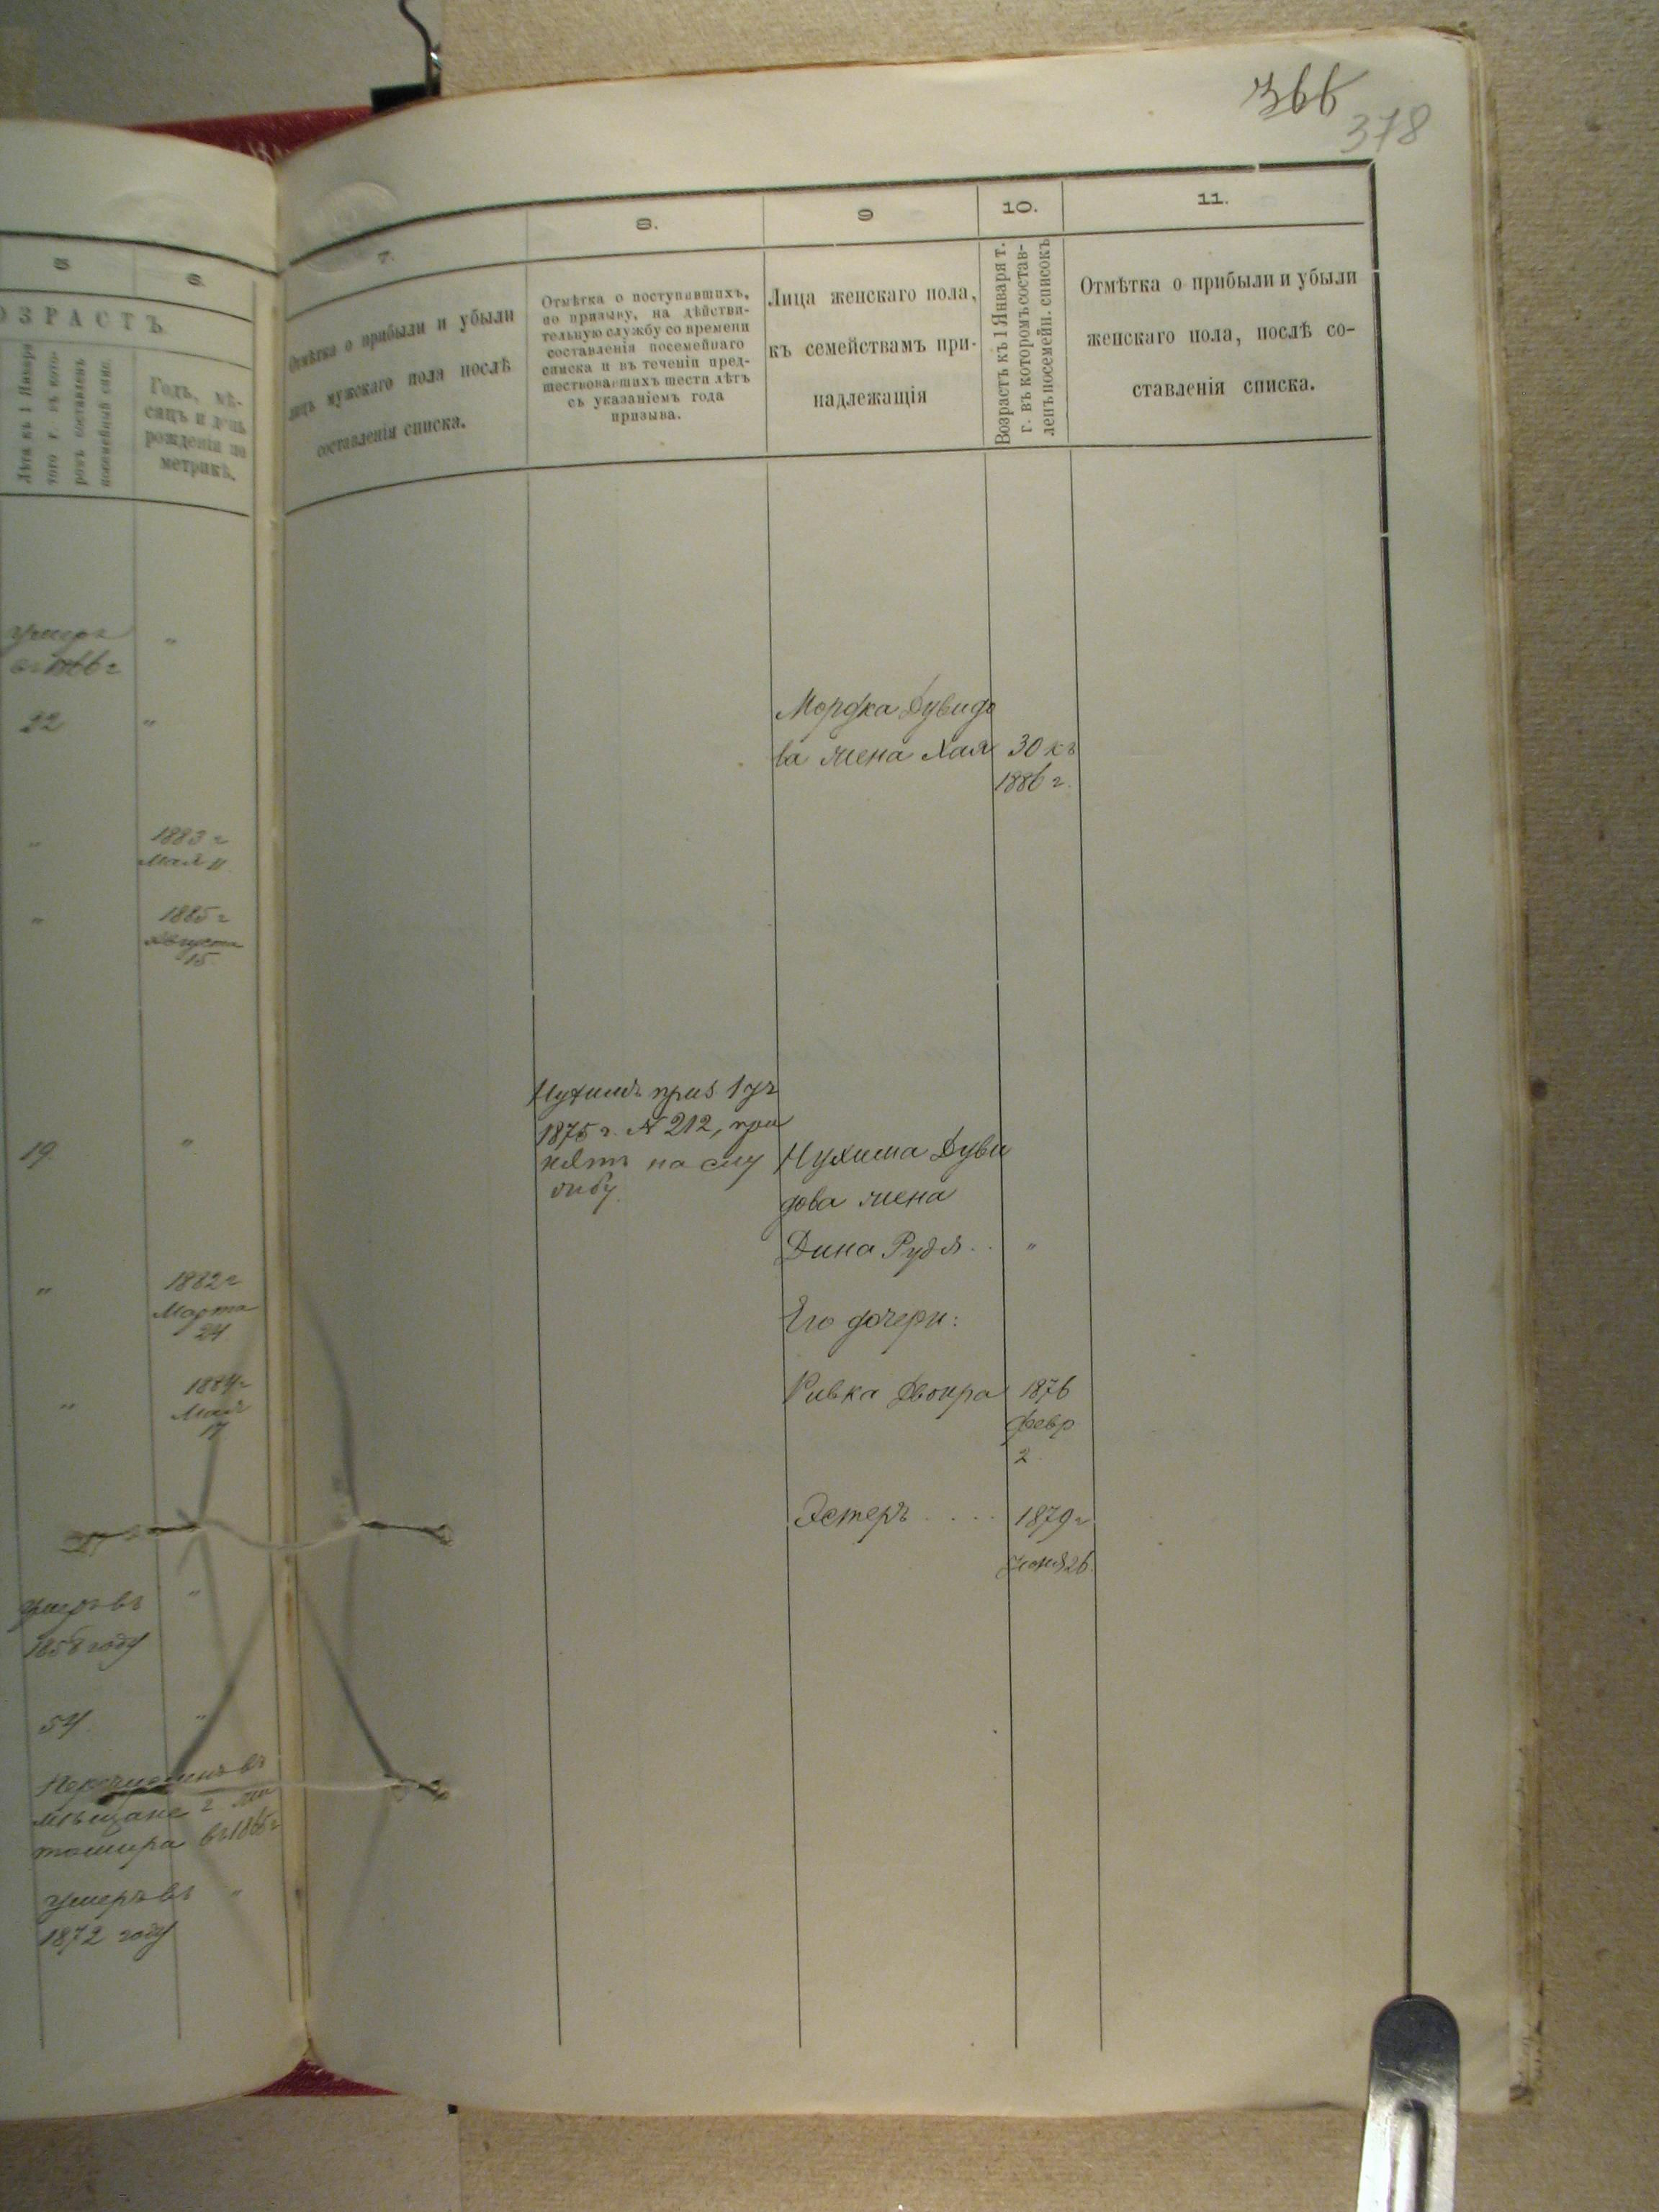 366
378
5
6.
ОЗРАСТЪ
Лѣта къ 1 Января
того г. въ кото-
ромъ составленъ
посемейный спис.
Годъ, мѣ-
сяцъ и день
рожденія по
метрикѣ.
умеръ
22
"
"
1883 г
Мая 11
"
1885 г
Августа
15
19.
"
"
1882 г
Марта
24
"
1884 г
Мая
17
умеръ въ
"
1858 году
54.
"
Перечисленъ въ
мѣщане г
умеръ въ
"
1872 году
7.
8.
9
10.
11.
Отмѣтка о прибыли и убыли
лицъ мужскаго пола послѣ
составленія списка.
Отмѣтка о поступившихъ,
по призыву, на дѣйстви-
тельную службу со времени
составленія посемейнаго
списка и въ теченіи пред-
шествовавшихъ шести лѣтъ
съ указаніемъ года
призыва.
Лица женскаго пола,
къ семействамъ при-
надлежащія
Возрастъ къ 1 Января т.
г. въ которомъ состав-
ленъ посемейн. списокъ
Отмѣтка о прибыли и убыли
женскаго пола, послѣ со-
ставленія списка.
Мордка Дувидо
ва жена Хая 30 къ
1886 г.
Нухимъ приз 1 уч
1875 г. № 212, при
нятъ на слу
жбу.
Нухима Дуви
дова жена
Дина Рудя . . "
Его дочери:
Ривка Двоира 1876
февр
2
Эстеръ . . . . 1879 г
Іюня 26.